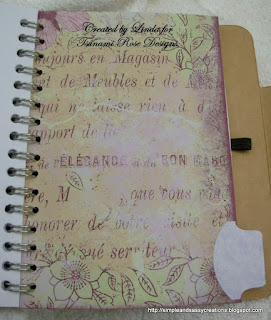 Created by Linda for
Tsunami Rose Designs
oujours en Magasin
et de Meubles et de
qui ne laisse rien à d
rapport de la
de l'ÉLÉGANCE et du BON MARC
ère, M
que vous
honorer de votre visite et
serviteur
http://simpleandsassycreations.blogspot.com